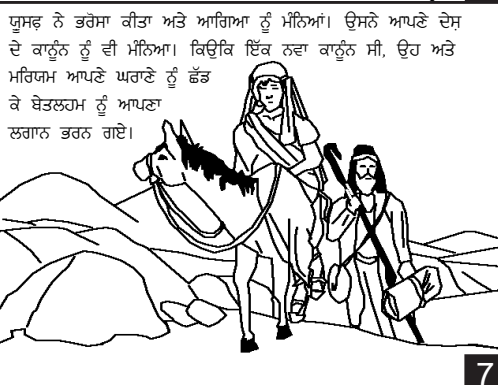 ਯੂਸਫ਼ ਨੇ ਭਰੋਸਾ ਕੀਤਾ ਅਤੇ ਆਗਿਆ ਨੂੰ ਮੰਨਿਆਂ। ਉਸਨੇ ਆਪਣੇ ਦੇਸ਼
ਦੇ ਕਾਨੂੰਨ ਨੂੰ ਵੀ ਮੰਨਿਆ। ਕਿਉਕਿ ਇੱਕ ਨਵਾ ਕਾਨੂੰਨ ਸੀ, ਉਹ ਅਤੇ
ਮਰਿਯਮ ਆਪਣੇ ਘਰਾਣੇ ਨੂੰ ਛੱਡ
ਕੇ ਬੇਤਲਹਮ ਨੂੰ ਆਪਣਾ
ਲਗਾਨ ਭਰਨ ਗਏ।
7